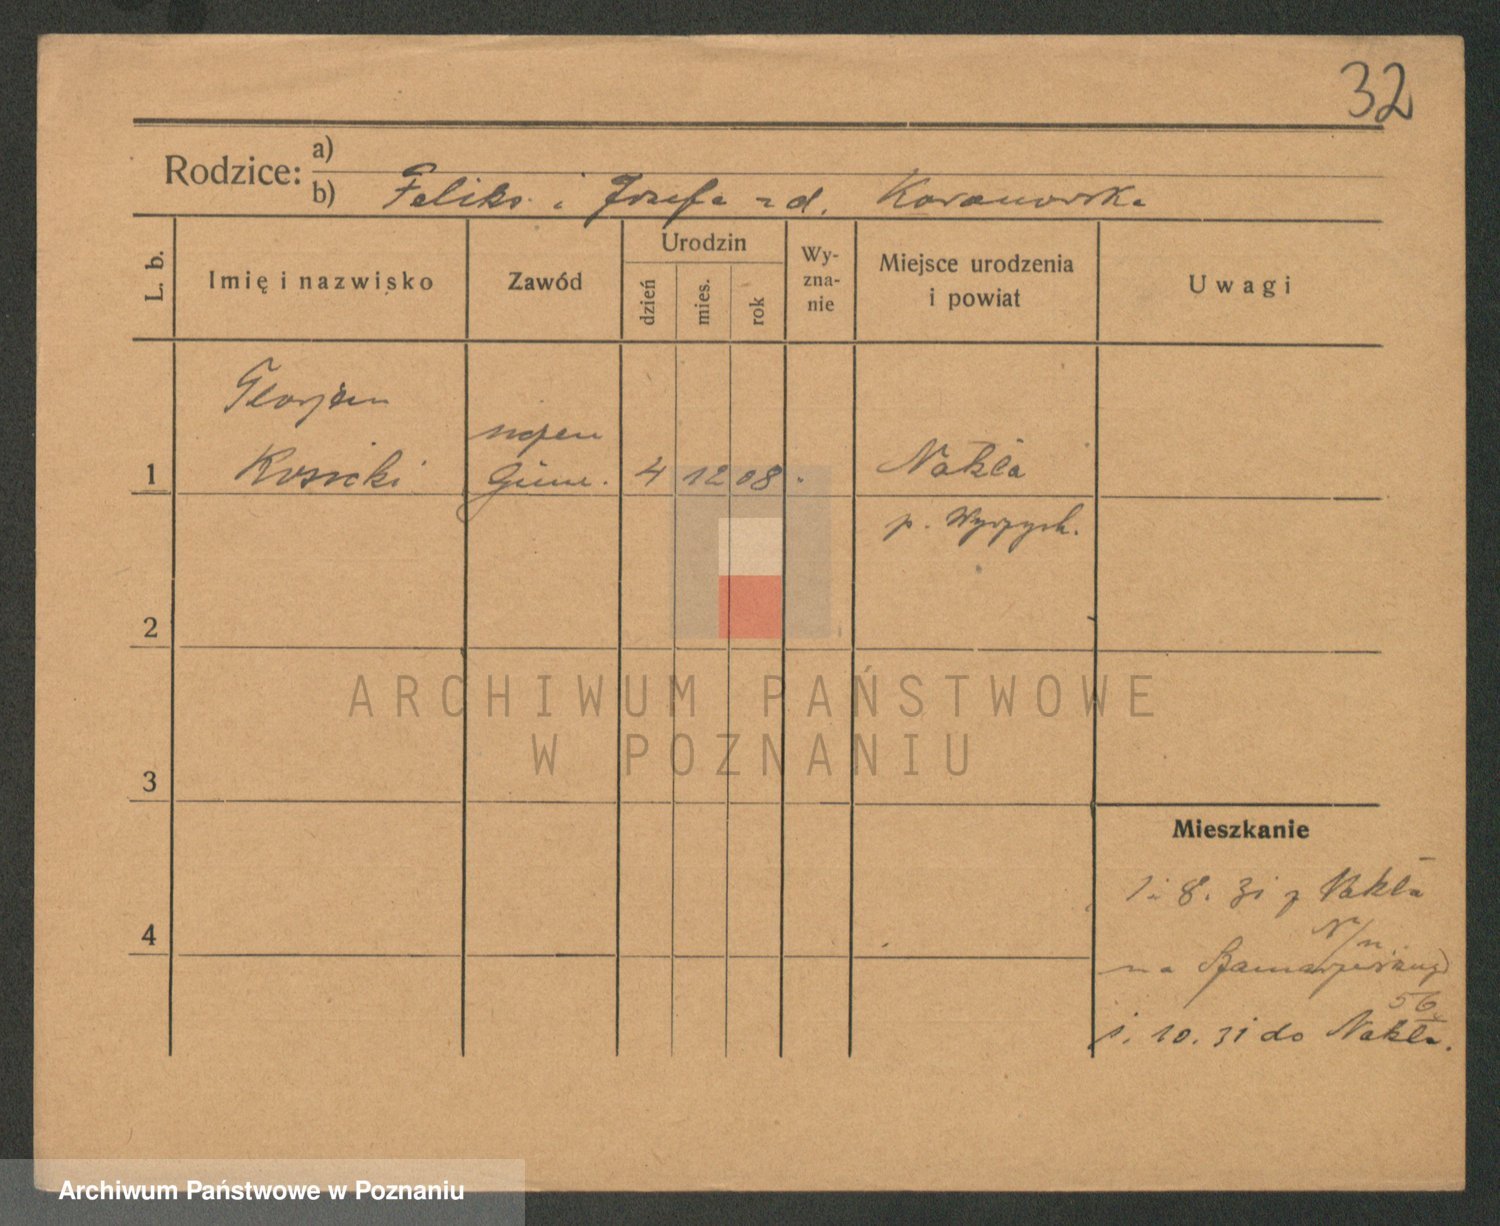 32
Rodzice: a)
b) Feliks i Józefa z d. Koronowska
L. b.
Imię i nazwisko
Zawód
Urodzin
dzień
mies.
rok
Wy-
zna-
nie
Miejsce urodzenia
i powiat
Uwagi
Florjan
Kosicki
Gimn.
1
4 12 08.
Nakła
p. Wyrzysk.
2
3
4
ARCHIWUM PAŃSTWOWE
W POZNANIU
Mieszkanie
8. 31 z Nakła
N/n.
na
56
1. 10. 31 do Nakła.
Archiwum Państwowe w Poznaniu